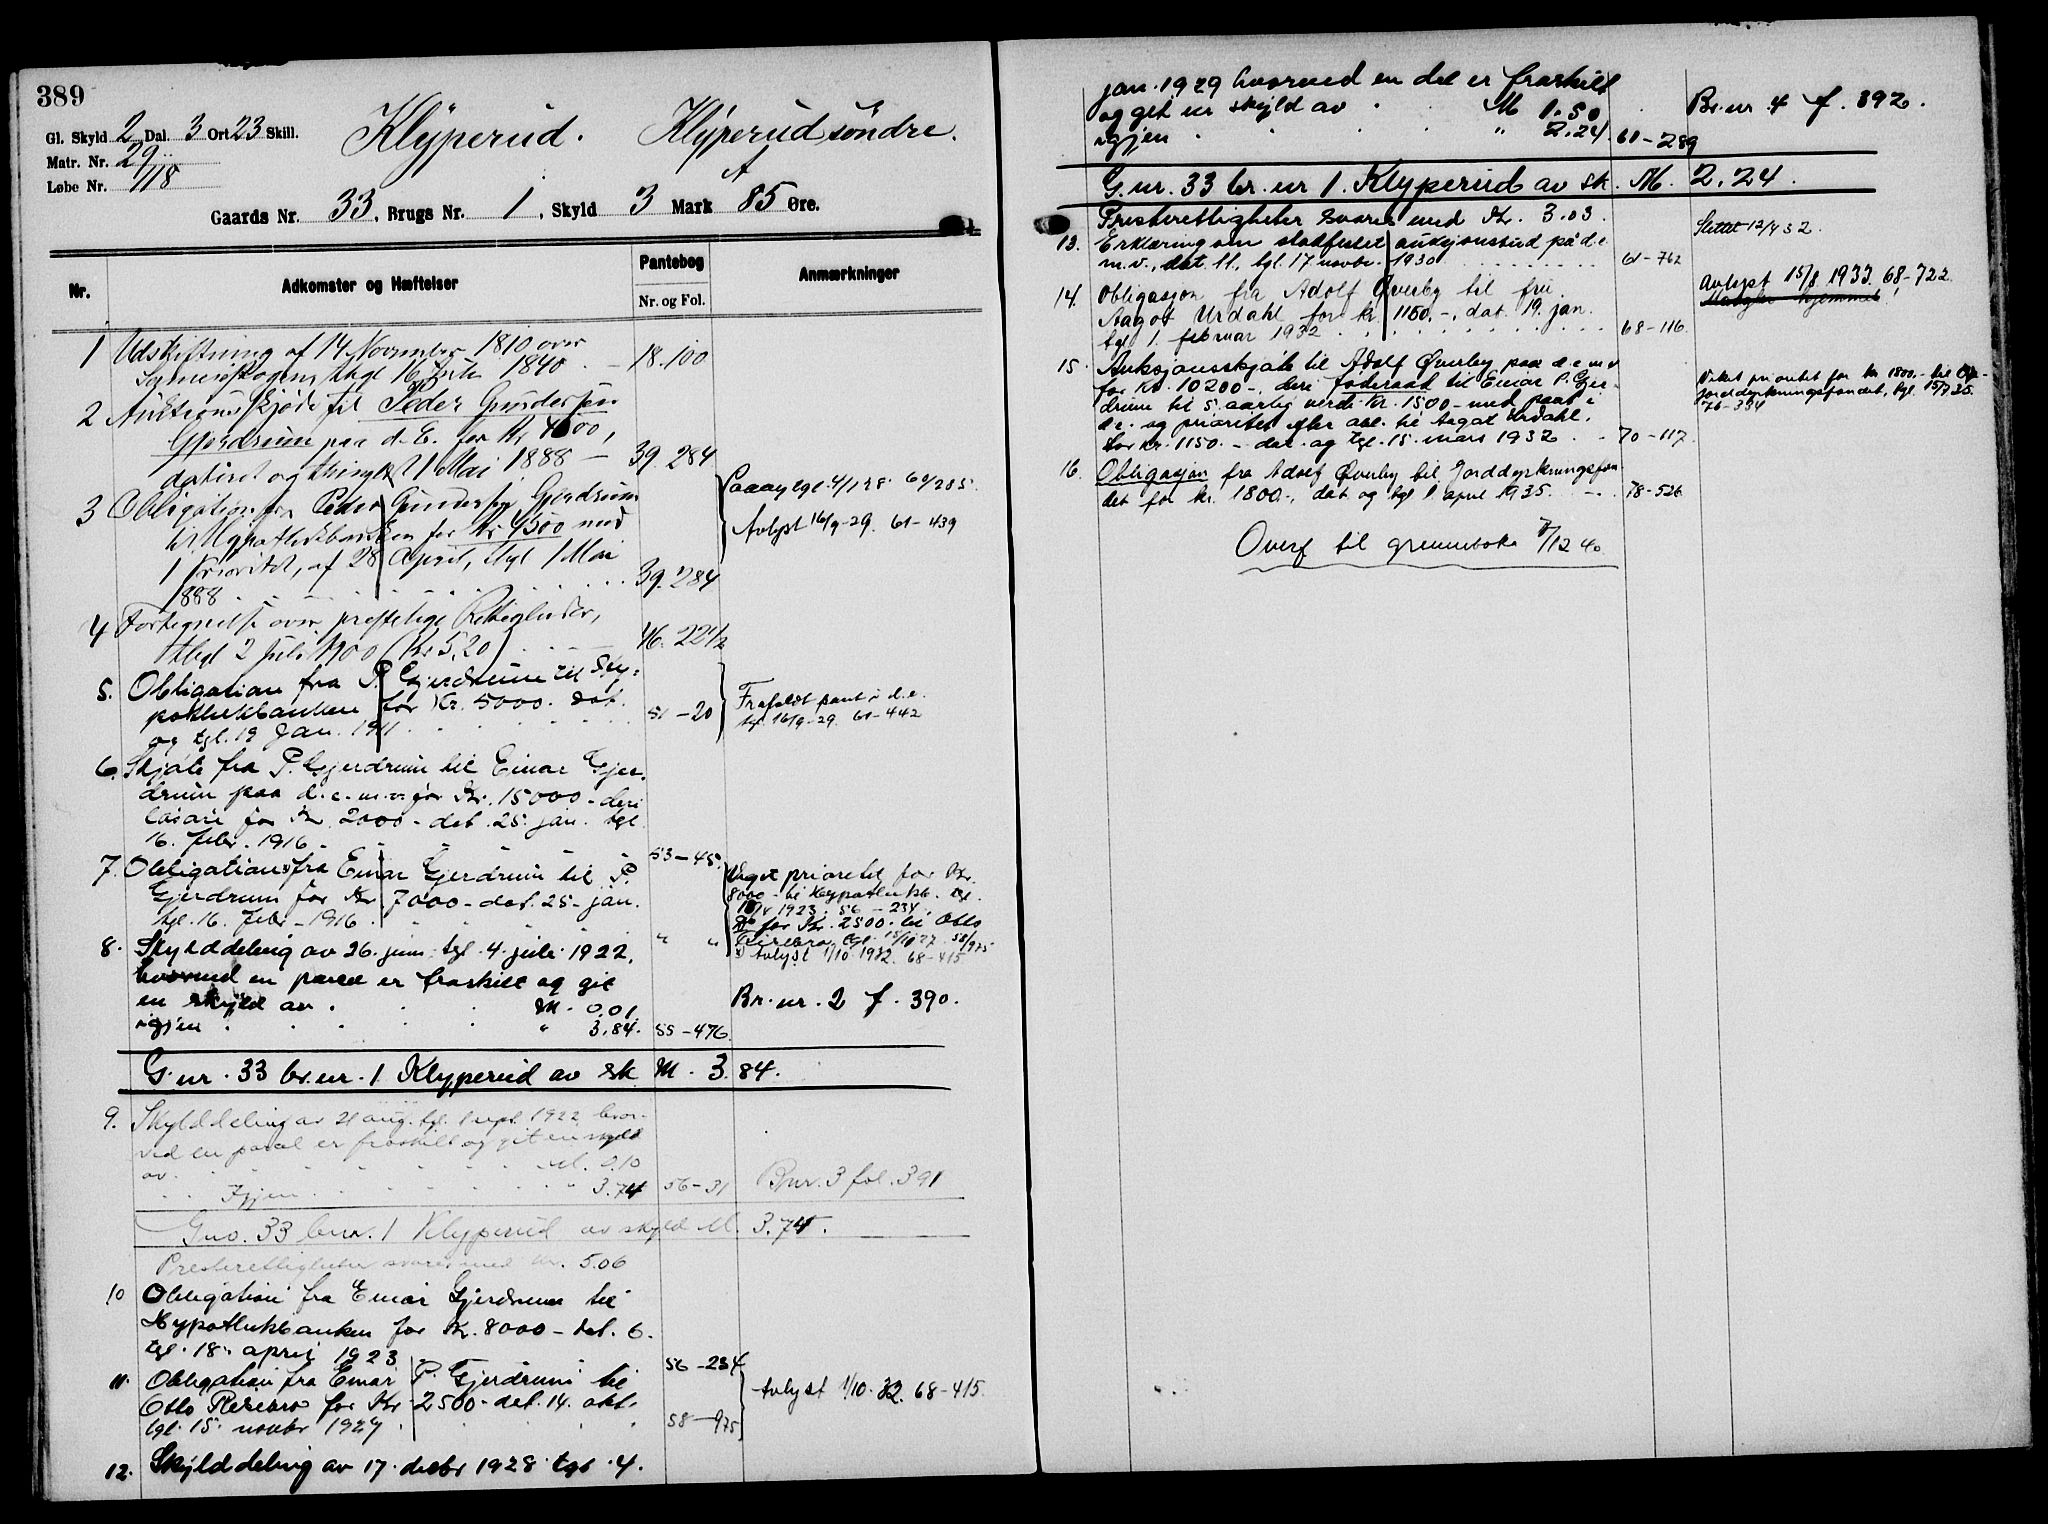 389
Gl. Skyld 2 Dal. 3 Ort 23 Skill.
Matr. Nr. 29
Løbe Nr. 118
Klyperud. Klyperud söndre.
A
Gaards Nr. 33, Brugs Nr. 1, Skyld 3 Mark 85 Øre.
Nr.
Adkomster og Hæftelser
Pantebog
Nr. og Fol.
Anmærkninger
1 Udskiftning af 14 November 1810 over
thgl 16 1840 18.100
2 Auctionsskjøde til Peder Gundersen
Gjerdrum paa d. E. for Kr 4000,
dateret og thinglyst 1 Mai 1888 39.284
3 Obligation fra Peder Gundersen Gjerdrum
til Hypothekbanken for Kr 4500 med
1 Prioritet, af 28 April, thgl 1 Mai
1888 39.284
Avlyst 16/9-29. 61-439
4 Fortegnelse over præstelige Rettigheder,
thgl 2 Juli 1900 (Kr 5,20) 46.221/2
5. Obligation fra P. Gjerdrum til Hy-
pothekbanken for Kr. 5000. dat.
og tgl. 19 Jan. 1911. 51-20
Frafaldt pant i d.e.
tgl. 16/9-29. 61-442
6. Skjøte fra P. Gjerdrum til Einar Gjer-
drum paa d.e.m.v. for Kr. 15000 - deri
løsøre for Kr. 2000 - dat. 25. jan. tgl
16. febr. 1916. 53-45.
7. Obligation fra Einar Gjerdrum til P.
Gjerdrum for Kr. 7000 - dat. 25. jan.
tgl. 16. febr. 1916. " "
Veget prioritet for Kr.
8000 - til Hypothekbk. tgl.
18/4 1923. 56-234.
Do for Kr. 2500. til Otto
tgl. 15/11 27. 58/975
Avlyst 1/10 1932. 68-415
8. Skylddeling av 26. juni tgl. 4. juli 1922,
hvorved en parcel er fraskilt og git
en skyld av M. 0,01
igjen " 3,84. 55-476
Br. nr. 2 f. 390.
G. nr. 33 br. nr. 1. Klyperud av sk. M. 3.84.
9. Skylddeling av 21 aug. tgl. 1 sept. 1922, hvor-
ved en parcel er fraskilt og git en skyld
av M. 0.10
Igjen " 3.74 56-31
Bnr. 3 fol. 391
Gno. 33 bno. 1 Klyperud av skyld M. 3.74.
Presterettigheter svares med kr. 5.06
10 Obligation fra Einar Gjerdrum til
Hypothekbanken for Kr. 8000 - dat. 6.
tgl. 18. april 1923 56-234
11. Obligation fra Einar P. Gjerdrum til
Otto for Kr. 2500 - dat. 14. okt.
tgl. 15. novbr 1927. 58-975
Avlyst 1/10. 32. 68-415.
12. Skylddeling av 17. decbr 1928 tgl. 4.
jan. 1929 hvorved en del er fraskilt
og git en skyld av M 1.50
igjen " 2.24. 61-289
Br. nr. 4 f. 392.
G. nr. 33 br. nr 1. Klyperud av sk. M. 2.24.
Presterettigheter svares med Kr. 3.03.
13. Erklæring om stadfestet auksjonsbud på d.e.
m.v., dat. 11, tgl. 17. novbr. 1930 61-762
Slettet 12/4 32.
14. Obligasjon fra Adolf Øverby til fru
Aagot Urdahl for kr. 1150.-, dat. 19. jan.
tgl 1. februar 1932 68-116.
Avlyst 15/8 1933. 68-722.
15. Auksjonsskjøte til Adolf Øverby paa d.e.m.v
for Kr. 10200 -, deri føderaad til Einar P. Gjer-
drum til 5 aarlig verdi Kr. 1500 - med pant i
d.e. og prioritet efter obl. til Aagot Urdahl,
for kr. 1150. - dat. og tgl. 15. mars 1932 70-117.
Veket prioritet for kr 1800.- til
jorddyrkningsfondet, tgl. 15/7 35.
76-334
16. Obligasjon fra Adolf Øverby til Jorddyrkningsfon-
det for kr. 1800.-, dat og tgl 1. april 1935. 78-526
Overf til grunnboka 7/12 40